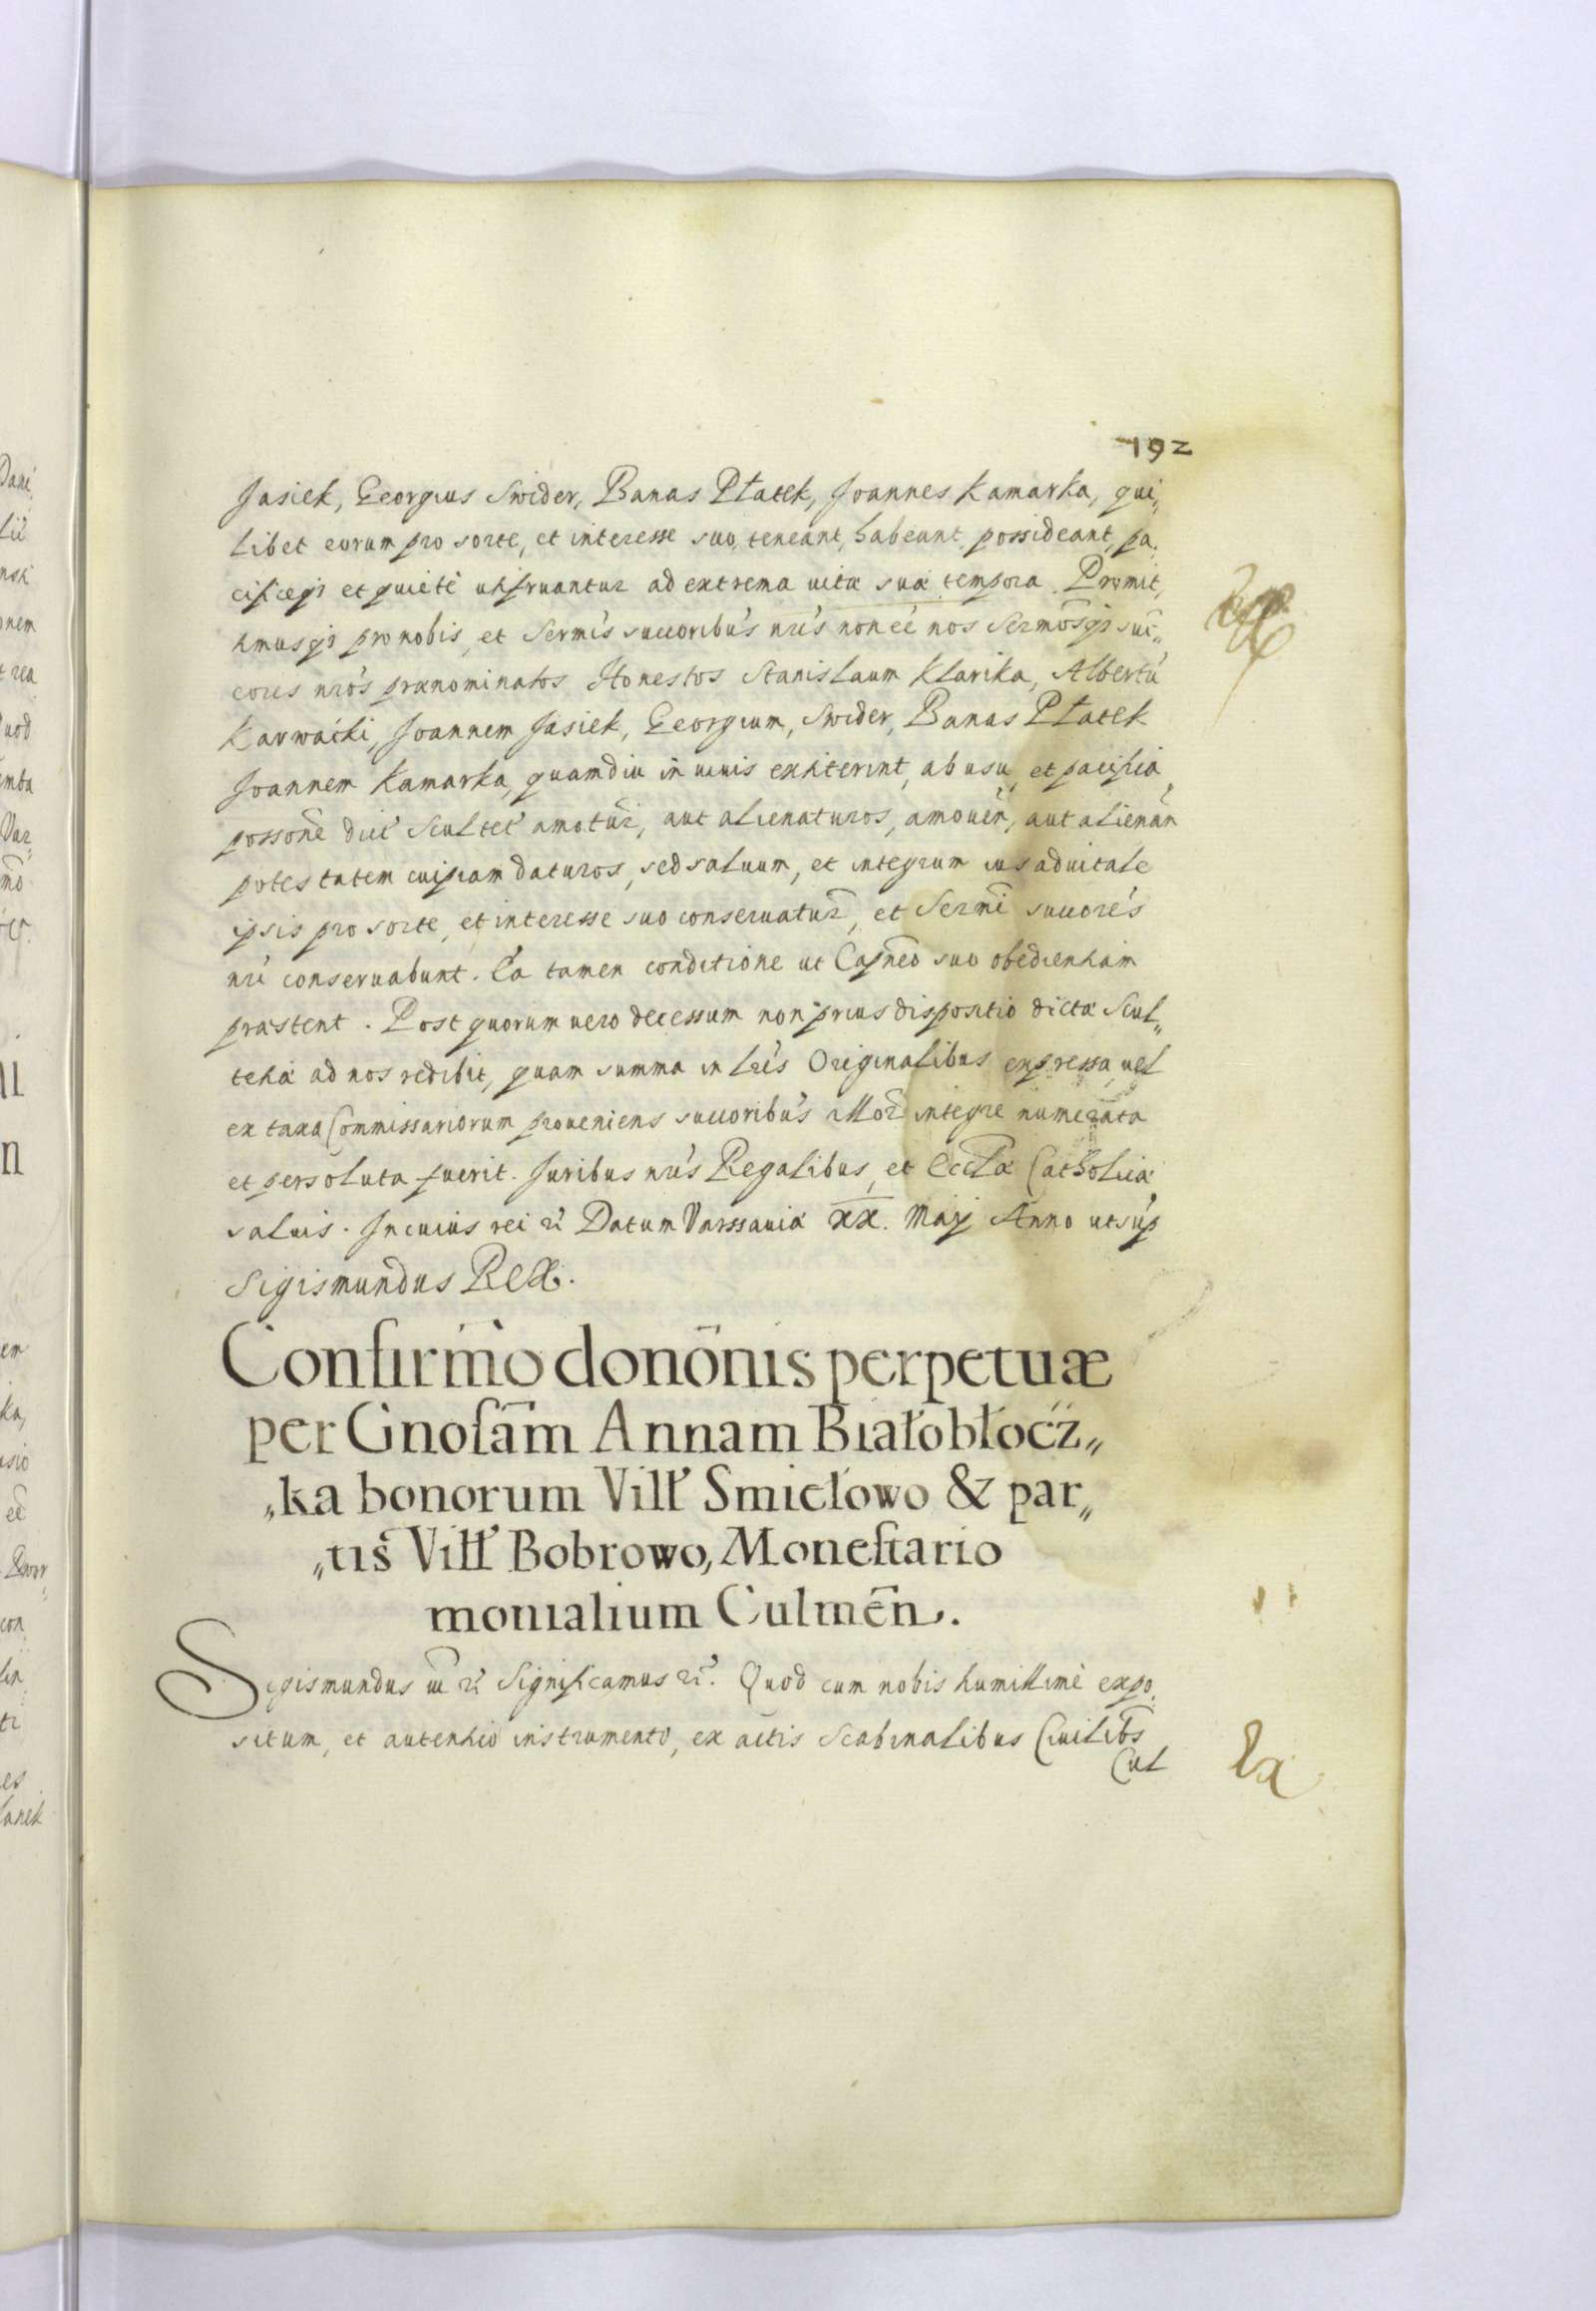 192
Jasiek, Georgius Swider, Banas Płatek, Joannes Kamarka, qui„
libet eorum pro sorte, et interesse suo, teneant, habeant, possideant, pa„
cificeqз et quietè utifruantur ad extrema uitæ suæ tempora. Promit„
timusqз pro nobis, et Serm̃is succoribús nrís non eé nos Sermosqз suc„
cores nrós prænominatos Honestos Stanislaum Klarika, Albertú
Karwacki, Joannem Jasiek, Georgium, Swider, Banas Płatek
Joannem Kamarka, quamdiu in uiuis extiterint, ab usu, et pacifica
possoné dict Scultet amotur̃, aut alienaturos, amouen̄, aut alienan̄
potestatem cuipiam daturos, sed saluum, et integrum ius aduitale
ipsis pro sorte, et interesse suo conseruatur̃, et Serm̃i succorés
nrí conseruabunt. Ea tamen conditione ut Capneo suo obedientiam
præstent. Post quorum uero decessum non prius dispositio dictæ Scul„
tetiæ ad nos redibit, quam summa in lrís Originalibus expressa, uel
ex taxa Commissariorum proueniens succoribús illor̃ integre numerata
et persoluta fuerit. Juribus nrís Regalibus, et Ecclæ Catholicæ
saluis. In cuius rei ꝛ̃ Datum Varssauiæ XX. Maij Anno ut súp
Sigismundus Rex.
Confirm̃o donōnis perpetuæ
per Gnosam̃ Annam Białobłocz„
„ka bonorum Vill Smiełowo & par„
„tis Vill Bobrowo, Monestario
monialium Culmen̄.
Sigismundus III ꝛ̃ Significamus ꝛ̃. Quod cum nobis humillimè expo„
situm, et autentico instrumento, ex actis Scabinalibus Ciuilibs
Cul